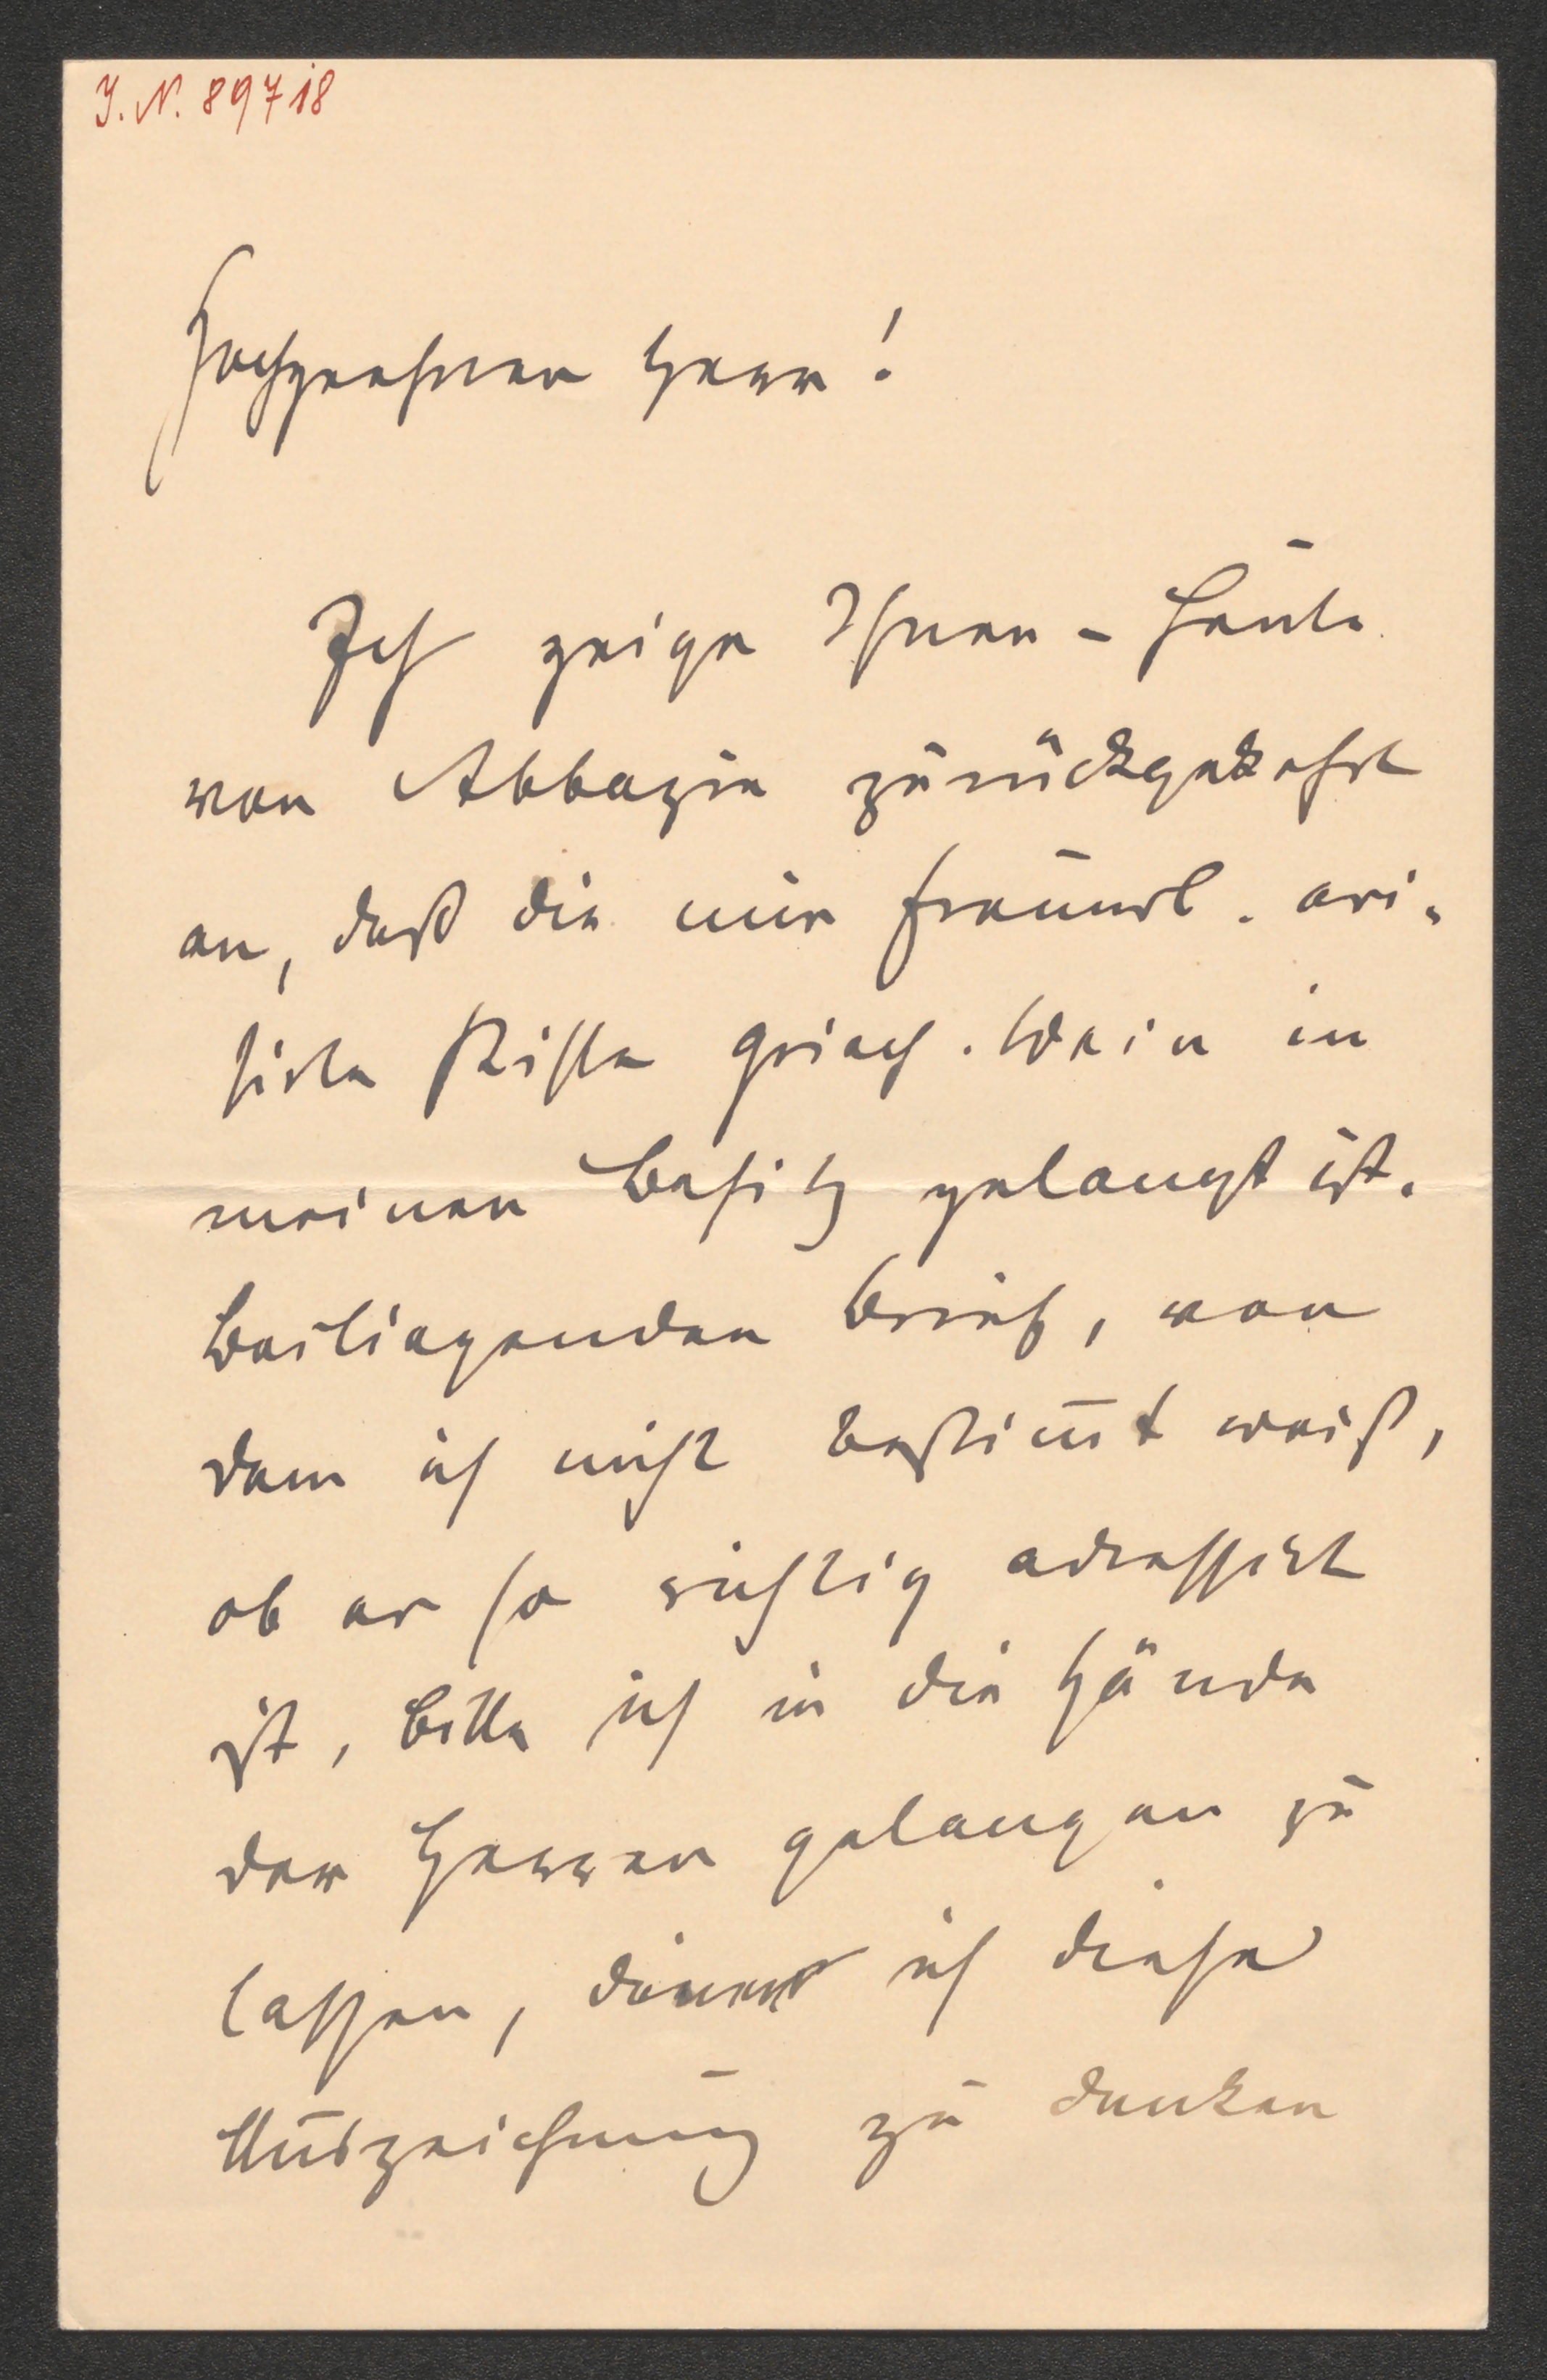 J. N. 89718
Hochgeehrter Herr!
Ich zeige Ihnen - heute
von Abbazia zurückgekehrt
an, daß die mir freundl. avi-
sirte Kiste griech. Wein in
meinen Besitz gelangt ist.
Beiliegenden Brief, von
dem ich nicht bestim̅t weiß,
ob er so richtig adressirt
ist, bitte ich in die Hände
der Herren gelangen zu
lassen, denen ich diese
Auszeichnung zu danken